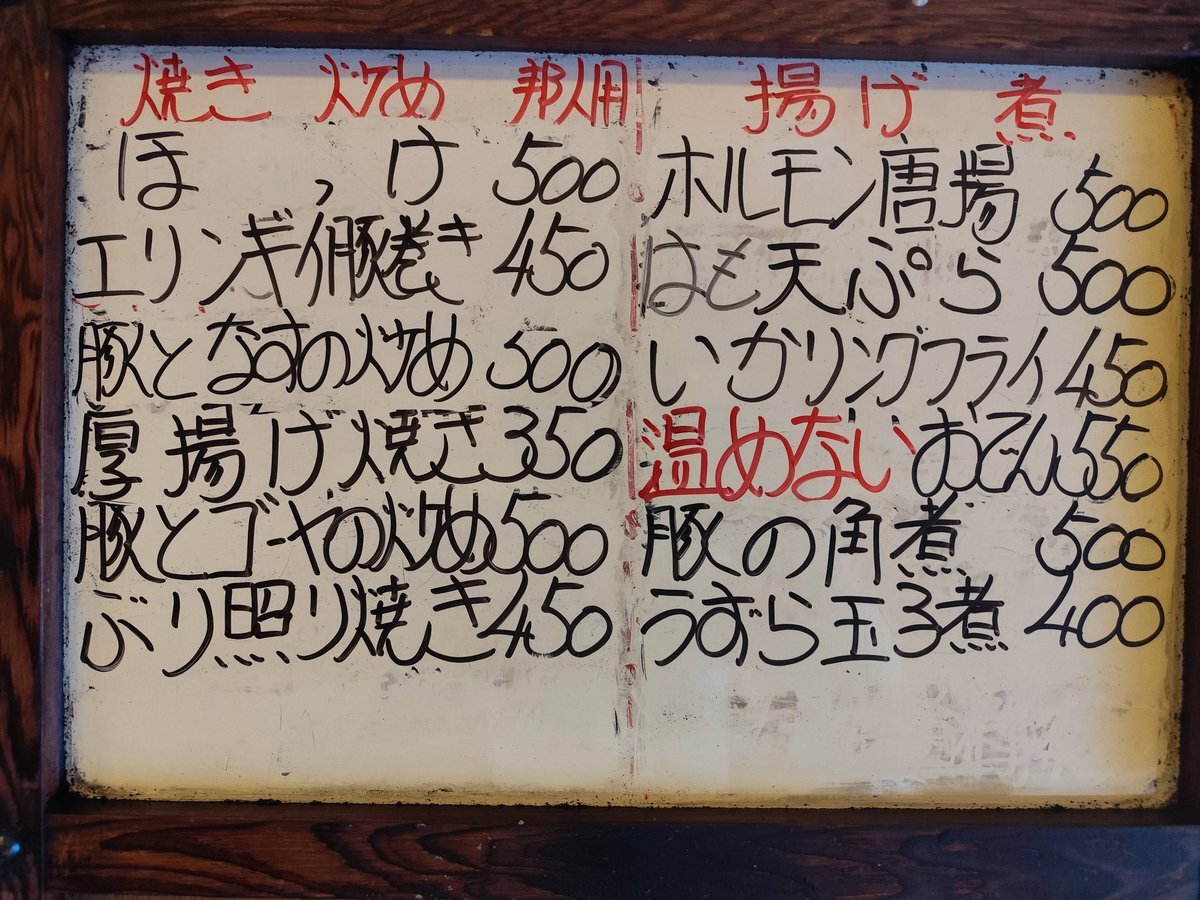 焼き 炒め 邦人用
ほっけ 500
エリンギ豚巻き 450
豚となすの炒め 500
厚揚げ焼き 350
豚とゴーヤの炒め 500
ぶり照り焼き 450
揚げ 煮
ホルモン唐揚 500
はも天ぷら 500
いかリングフライ 450
温めないおでん 550
豚の角煮 500
うずら玉子煮 400